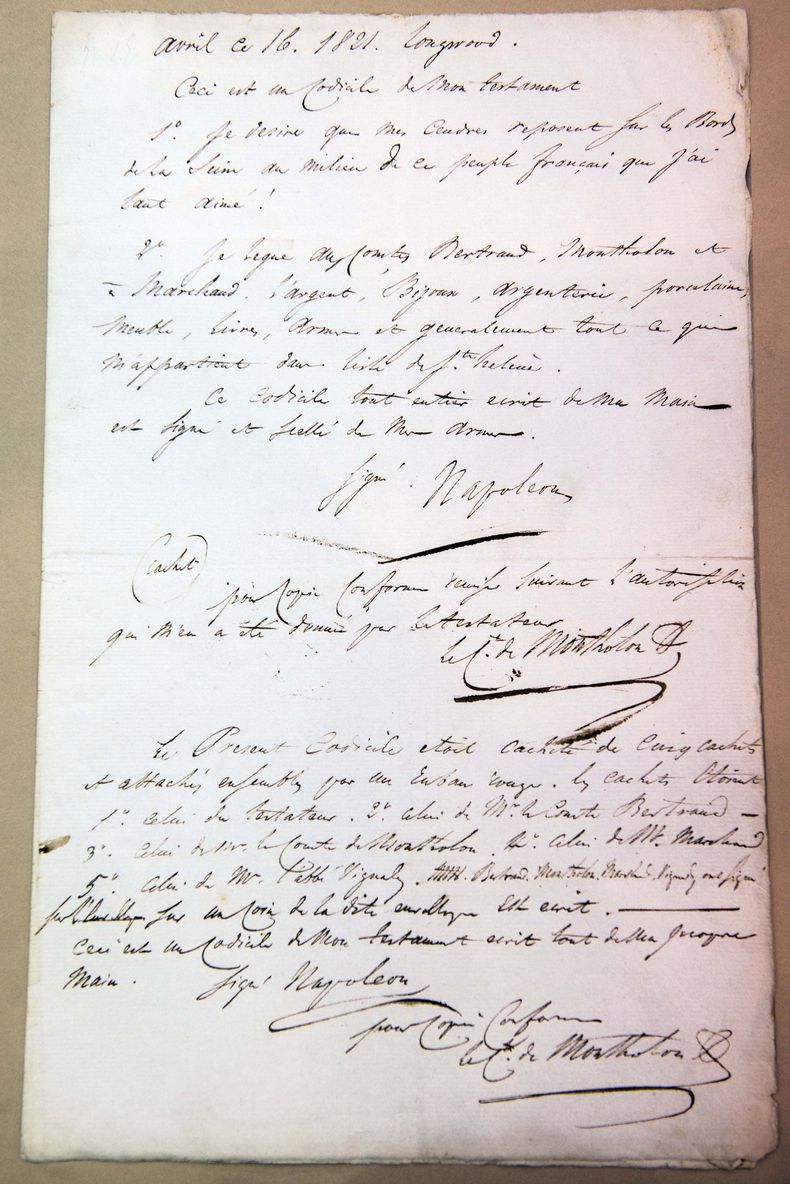 avril ce 16. 1821. Longwood.
Ceci est un Codicile de Mon testament
1° Je desire que mes Cendres reposent sur les Bords
de la Seine au milieu de ce peuple français que j'ai
tant aimé !
2° Je legue aux Comtes Bertrand, Montholon et
à Marchand, l'argent, Bijoux, argenterie, porcelaine,
Meuble, Livres, Armes et generalement tout ce qui
m'appartient dans l'isle de Ste helene.
Ce Codicile tout entier ecrit de Ma Main
est signé et scellé de Mes Armes.
signé. Napoleon
(cachet)
pour Copie Conforme suivant l'autorisation
qui m'en a été donnée par le testateur
le Cte de Montholon
Le Present Codicile etoit cacheté de Cinq cachets
et attachés ensembles par un Ruban rouge. les cachets Etoient
1° celui du testateur. 2° celui de Mr. le Comte Bertrand —
3° celui de Mr. le Comte de Montholon. 4° celui de Mr. Marchand
5° celui de Mr. l'abbé Vignaly. MM. Bertrand, Montholon, Marchand, Vignaly ont signé
sur l'Enveloppe sur un Coin de la dite enveloppe Est ecrit. —
Ceci est un Codicile de Mon testament ecrit tout de Ma propre
Main. signé Napoleon
pour Copie Conforme
le Cte de Montholon